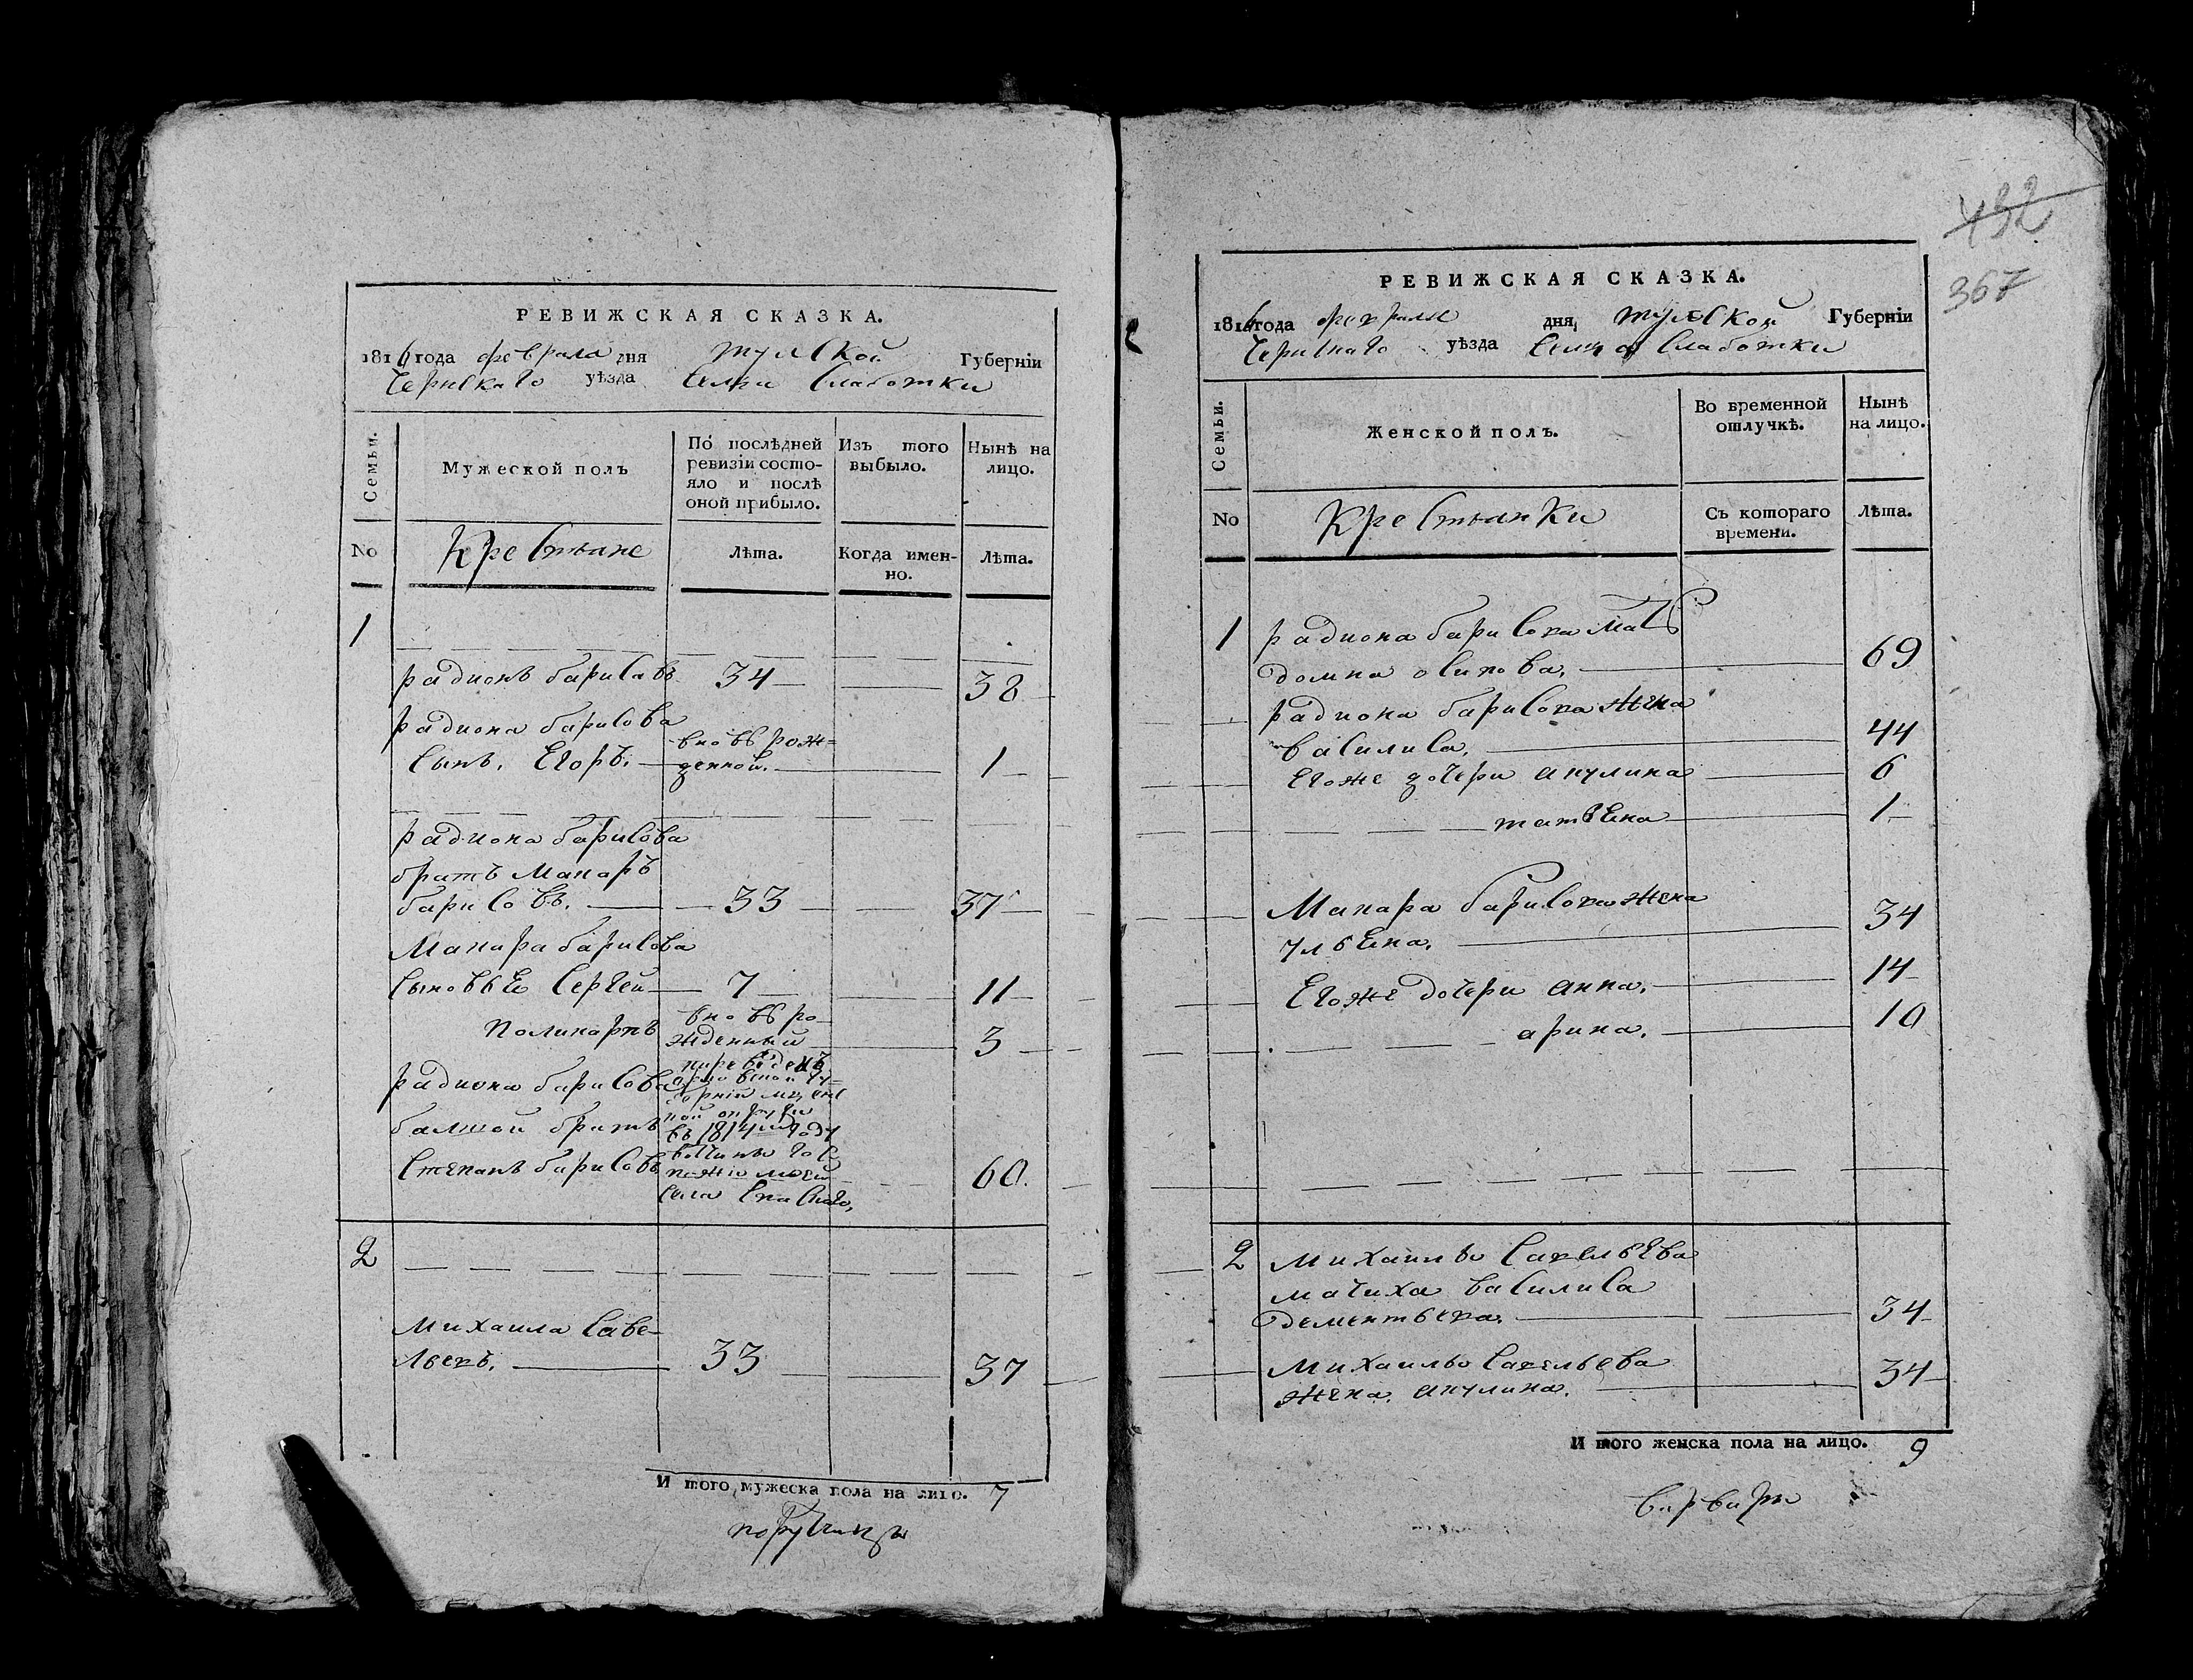 РЕВИЖСКАЯ СКАЗКА.
1816 года февраля дня Тульской Губерніи
Чернскаго уѣзда Сельца Слаботки
Семьи.
Мужеской полъ
По послѣдней ревизіи состо-
яло и послѣ
оной прибыло.
Изъ того
выбыло.
Нынѣ на
лицо.
No
Крестьяне
Лѣта.
Когда имен-
но.
Лѣта.
1
радионъ барисавъ 34 38
радиона барисова
сынъ. Егоръ. вновь рож=
денной. 1
радиона барисова
братъ Макаръ
барисовъ. 33 37
Макара барисова
сыновьЕ Сергеи 7 11
поликарпъ вновь ро
жденный 3
радиона барисова
балшои братъ
Степанъ барисовъ 60.
въ 1814м году
села Спаскаго,
2
михаила Саве-
льевъ. 33 37
И того мужеска пола на лицо. 7
432
367
РЕВИЖСКАЯ СКАЗКА.
1816 года февраля дня, Тульской Губерніи
Чернскаго уѣзда Сельца Слаботки
Семьи.
Женской полъ.
Во временной
отлучкѣ.
Нынѣ
на лицо.
No
Крестьянки
Съ котораго
времени.
Лѣта.
1 радиона барисова мать
домна осипова. 69
радиона барисова жена
василиса. 44
Егоже дочери акулина 6
татьЕна 1
Макара барисова жена
ульЕна. 34
Егоже дочери анна. 14
арина. 10
2 михаилы савельЕва
мачиха василиса
дементьева. 34
михаилы савельева
жена. акулина. 34
И того женска пола на лицо. 9
варвары